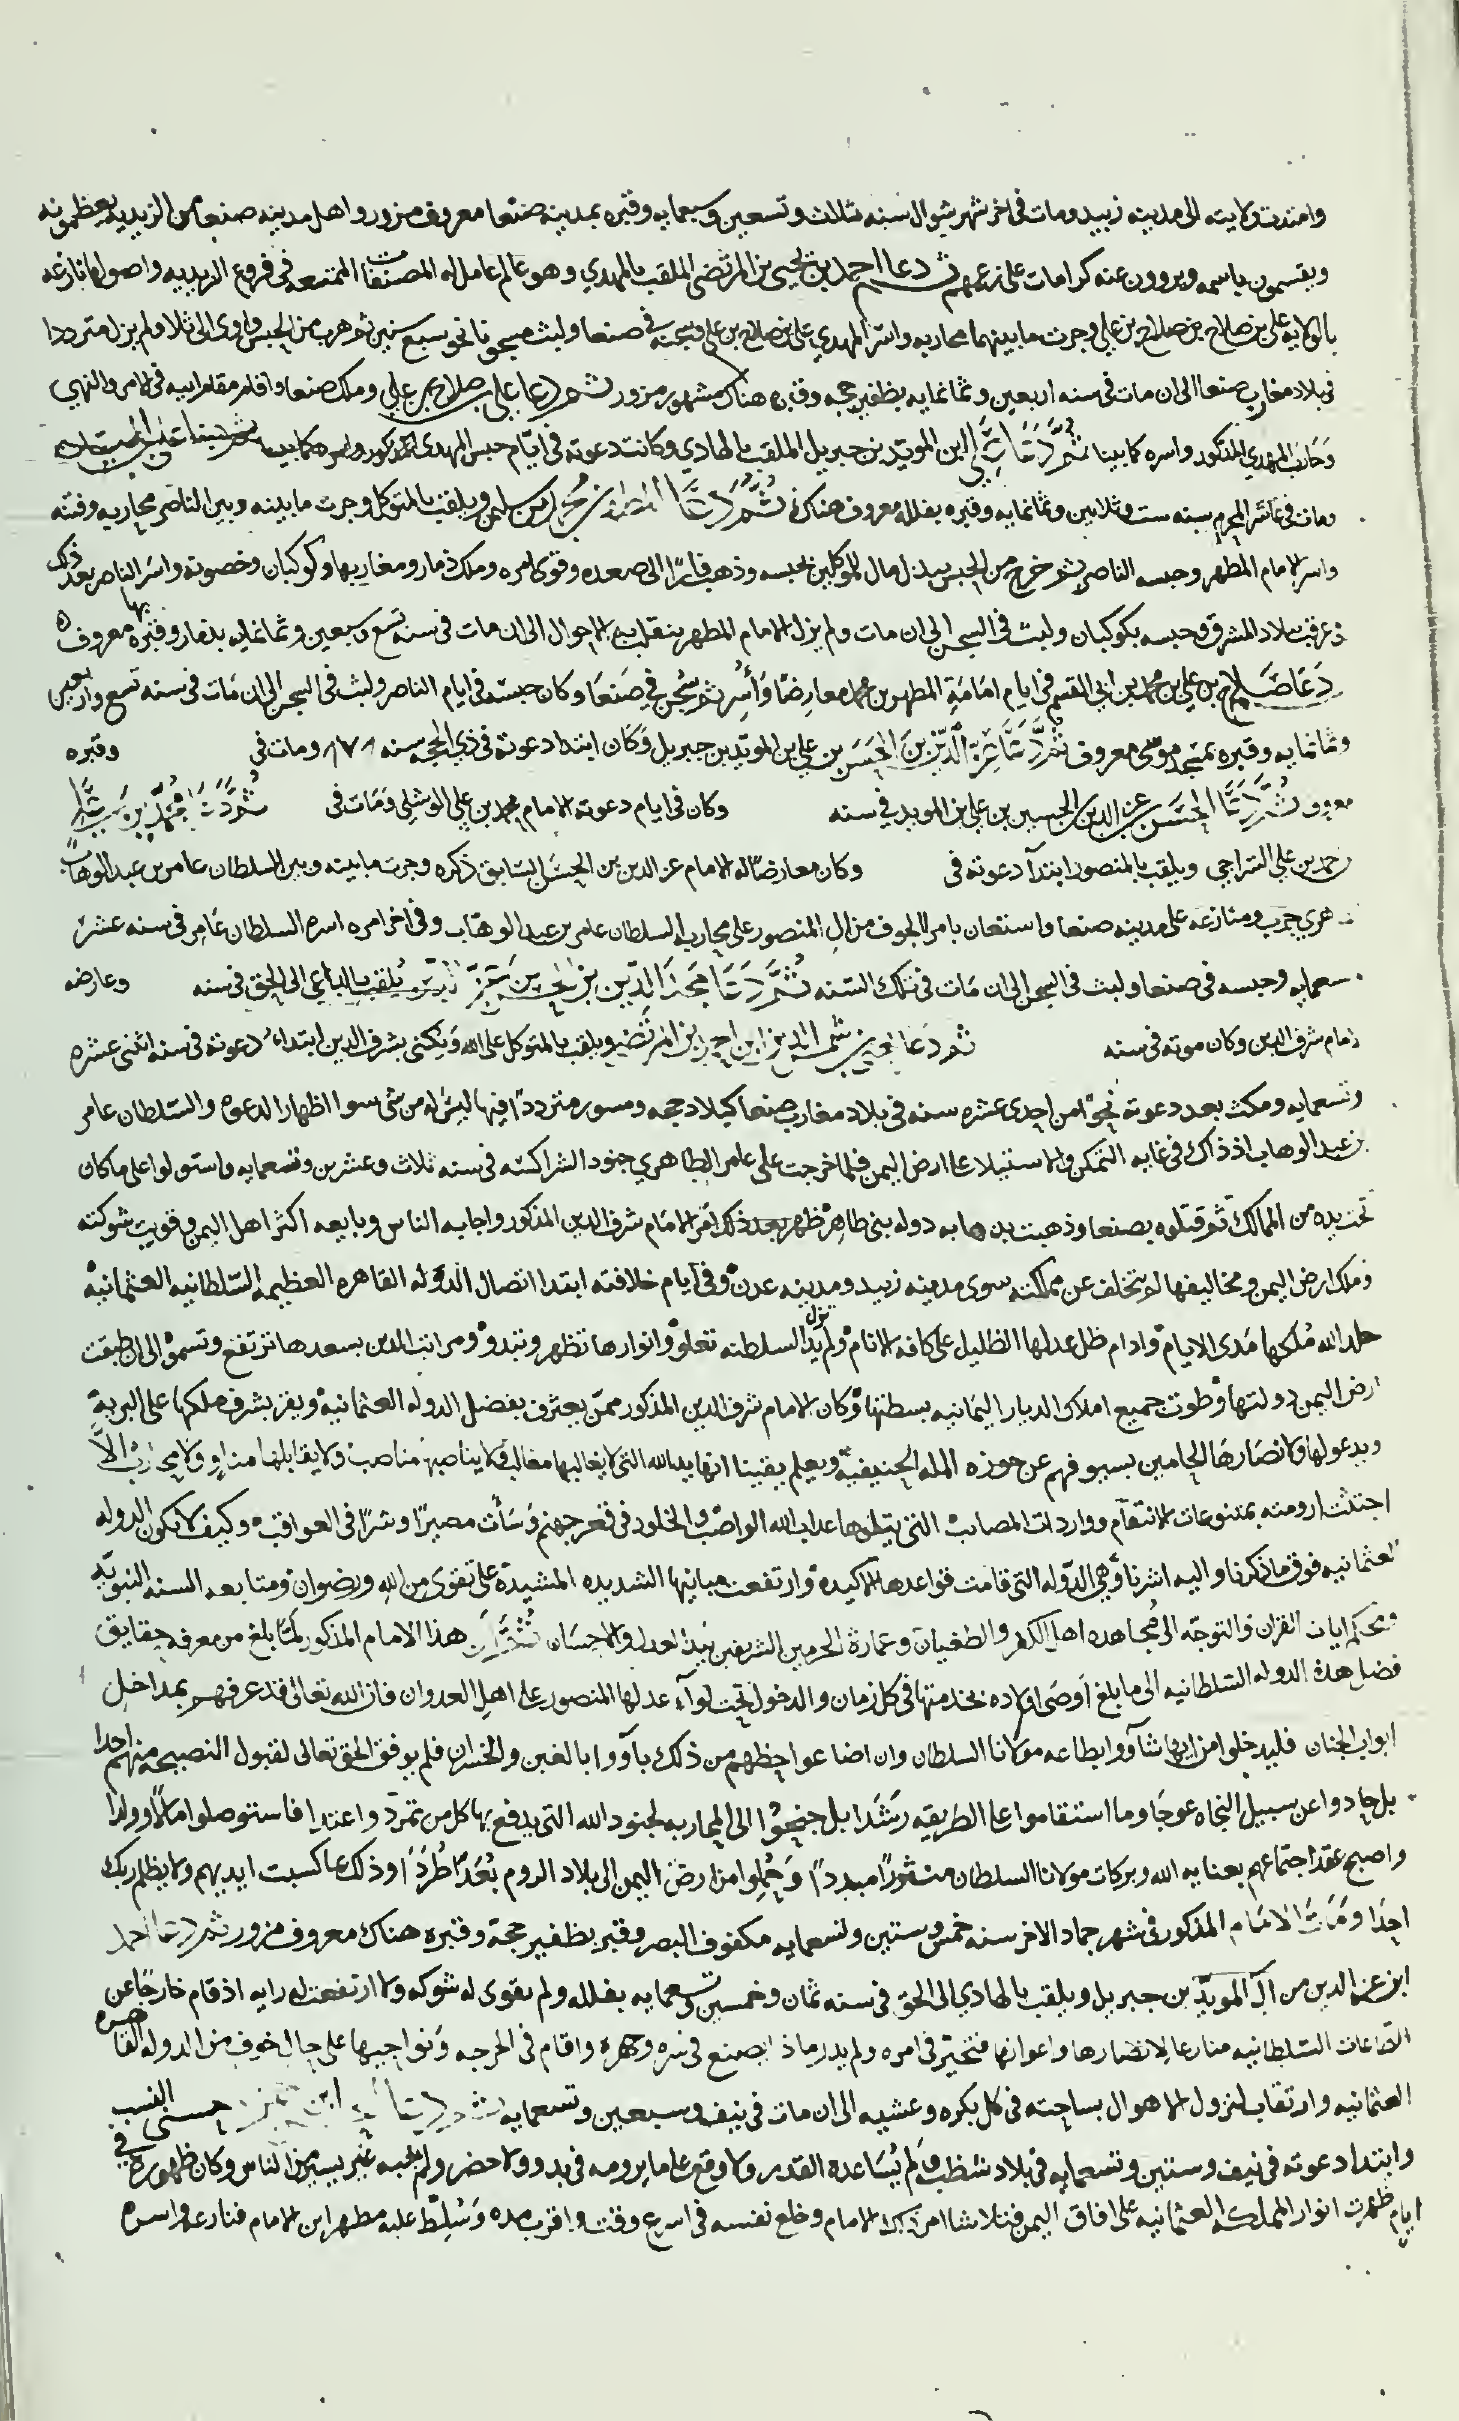 وامتدت ولايته الى مدينه زبيد ومات فى اخر شهر شوال سنه ثلاث وتسعين وسبعمايه وقبره بمدينه صنعا معروف مزور واهل مدينه صنعا من الزيديه يعظمونه
ويقسمون باسمه ويروون عنه كرامات على زعمهم ثم دعا احمد بن يحيى بن المرتضى الملقب بالمهدي وهو عالم عامل له المصنفات الممتعه فى فروع الزيديه واصولها نازعه
بالولايه على بن صلاح بن علي وجرت ما بينهما محاربه واسر المهدي على بن صلاح بن علي وسجنه فى صنعا ولبث مسجونا نحو سبع سنين ثم هرب من الحبس واوى الى ثلا ولم يزل مترددا
فى بلاد مغارب صنعا الى ان مات فى سنه اربعين وثمانمايه بظفير حجه وقبره هناك مشهور مزور ثم دعا على بن صلاح بن علي وملك صنعا واقام مقام ابيه فى الامر والنهي
المهدي المذكور واسره كما بينا ثم دعا ابن المويد بن جبريل الملقب بالهادي وكانت دعوته فى ايام حبس المهدى المذكور واسره كما بينا
ومات فى عاشر المحرم سنه ست وثلاثين وثمانمايه وقبره بفلله معروف هناك ثم دعا المطهر بن محمد بن سليمن ويلقب بالمتوكل وجرت ما بينه وبين الناصر محاربه وفتنه
واسر الامام المطهر وحبسه الناصر ثم خرج من الحبس ببذل مال للموكلين بحبسه وذهب فارًا الى صعده وقوى امره وملك ذمار ومغاربها وكوكبان وحصونه واسر الناصر بعد ذلك
بلاد المشرق وحبسه بكوكبان ولبث فى السجن الى ان مات ولم يزل الامام المطهر يتقلب به الاحوال الى ان مات فى سنه تسع وسبعين وثمانمايه بذمار وقبره بها معروف
دعا صلاح بن علي بن محمد بن ابي القسم فى ايام امامة المطهر بن محمد معارضًا وأُسر ثم سجن فى صنعا وكان حبسه فى ايام الناصر ولبث فى السجن الى ان مات فى سنه تسع واربعين
وثمانمايه وقبره بمسجد موسى معروف ثم دعا عز الدين بن الحسن بن علي بن المويد بن جبريل وكان ابتدا دعوته فى ذي الحجه سنه ٨٧٨ ومات فى وقبره
معروف ثم دعا الحسن بن عز الدين بن الحسين بن علي بن المويد فى سنه وكان فى ايام دعوته الامام محمد بن علي الوشلي ومات فى ثم دعا
بن علي السراجي ويلقب بالمنصور ابتدآ دعوته فى وكان معارضًا له الامام عز الدين بن الحسن السابق ذكره وجرت ما بينه وبين السلطان عامر بن عبد الوهاب
حرب ومنازعه على مدينه صنعا واستعان بامرا الجوف من ال المنصور على محاربه السلطان عامر بن عبد الوهاب وفى اخر امره اسره السلطان عامر فى سنه عشر
وحبسه فى صنعا ولبث فى السجن الى ان مات فى تلك السنه ثم دعا مجد الدين بن الحسن بن عز الدين يلقب بالداعي الى الحق فى سنه وعارضه
امام شرف الدين وكان موته فى سنه ثم دعا يحيى بن شمس الدين ابن احمد بن المرتضى ويلقب بالمتوكل على الله ويكنى بشرف الدين ابتداء دعوته فى سنه اثنى عشره
وتسعمايه ومكث بعد دعوته نحوًا من احدى عشره سنه فى بلاد مغارب صنعا كبلاد حجه ومسور مترددًا فيها ليس له من شى سوا اظهار الدعوه والسلطان عامر
بن عبد الوهاب اذ ذاك فى غايه التمكن والاستيلا على ارض اليمن فلما خرجت على عامر الطاهري جنود الشراكسه فى سنه ثلاث وعشرين وتسعمايه واستولوا على ما كان
تحت يده من الممالك ثم قتلوه بصنعا وذهبت بذهابه دوله بنى طاهر ظهر بعد ذلك امر الامام شرف الدين المذكور واجابه الناس وبايعه اكثر اهل اليمن وقويت شوكته
وملك ارض اليمن ومخاليفها لم يتخلف عن مملكته سوى مدينه زبيد ومدينه عدن وفى ايام خلافته ابتدا اتصال الدوله القاهره العظيمه السلطانيه العثمانيه
خلد الله ملكها مدى الايام وادام ظل عدلها الظليل على كافه الانام ولم يزل يد السلطنه تعلو وانوارها تظهر وتبدو ومراتب الدين بسعدها ترتفع وتسمو الى ان طبقت
ارض اليمن دولتها وطوت جميع املاك الديار اليمانيه بسطتها وكان الامام شرف الدين المذكور ممن يعترف بفضل الدوله العثمانيه ويقر بشرف ملكها على البريه
ويدعو لها ولانصارها الحامين بسيوفهم عن حوزه المله الحنيفيه ويعلم يقينا انها يد الله التى لا يغالبها مغالب ولا يناصبها مناصب ولا يقابلها مناو ولا محارب الا
اجتثت ارومته بمتنوعات الانتقام وواردات المصايب التى يتلوها عذاب الله الواصب والخلود فى قعر جهنم وسات مصيرًا وشرًا فى العواقب وكيف لا تكون الدوله
العثمانيه فوق ما ذكرنا واليه اشرنا وهي الدوله التى قامت قواعدها الاكيده وارتفعت مبانيها الشديده المشيدة على تقوى من الله ورضوان ومتابعه السنه النبويه
ومحكم ايات القران والتوجه الى مجاهده اهل الكفر والطغيان وعمارة الحرمين الشريفين بيد العدل والاحسان ثم ان هذا الامام المذكور لما بلغ من معرفه حقايق
فضل هذه الدوله السلطانيه الى ما بلغ اوصى اولاده بخدمتها فى كل زمان والدخول تحت لوآء عدلها المنصور على اهل العدوان فان الله تعالى قد عرفهم بمداخل
ابواب الجنان فليدخلوا من ايها شآووا بطاعه مولانا السلطان وان اضاعوا حظهم من ذلك بآووا بالغبن والخسران فلم يوفق الحق تعالى لقبول النصيحه منهم احدا
بل حادوا عن سبيل النجاه عوجا وما استقاموا على الطريقه رشدا بل جنحوا الى المحاربه لجنود الله التى يدفع بها كل من تمرد واعتدا فاستوصلوا مالًا وولدا
واصبح عقد اجتماعهم بعنايه الله وبركات مولانا السلطان منثورًا مبددًا وحُملوا من ارض اليمن الى بلاد الروم بُعدًا طُردًا وذلك بما كسبت ايديهم ولا يظلم ربك
احدا ومات الامام المذكور فى شهر جماد الاخر سنه خمس وستين وتسعمايه مكفوف البصر وقبر بظفير حجة وقبره هناك معروف مزور ثم دعا احمد
ابن عز الدين من آل المويد بن جبريل ويلقب بالهادي الى الحق فى سنه ثمان وخمسين وتسعمايه بفلله ولم يقوى له شوكه ولا ارتفعت له رايه اذ قام خارجًا عن
الطاعات السلطانيه منازعا لانصارها واعوانها فتحير فى امره ولم يدر ماذا يصنع فى سره وجهره واقام فى الحرجه ونواحيها على حال خوف من الدوله القاهره
العثمانيه وارتقاب لنزول الاهوال بساحته فى كل بكره وعشيه الى ان مات فى نيف وسبعين وتسعمايه ثم دعا حسني النسب
وابتدا دعوته فى نيف وستين وتسعمايه فى بلاد شظب ولم يساعده القدر ولا وقع على ما يرومه فى بدو ولا حضر ولم يجبه غير يسير من الناس وكان ظهوره فى
ايام ظهرت انوار المملكه العثمانيه على افاق اليمن فتلاشا امر ذلك الامام وخلع نفسه فى اسرع وقت واقرب مده وسُلط عليه مطهر ابن الامام فنازعه واسره